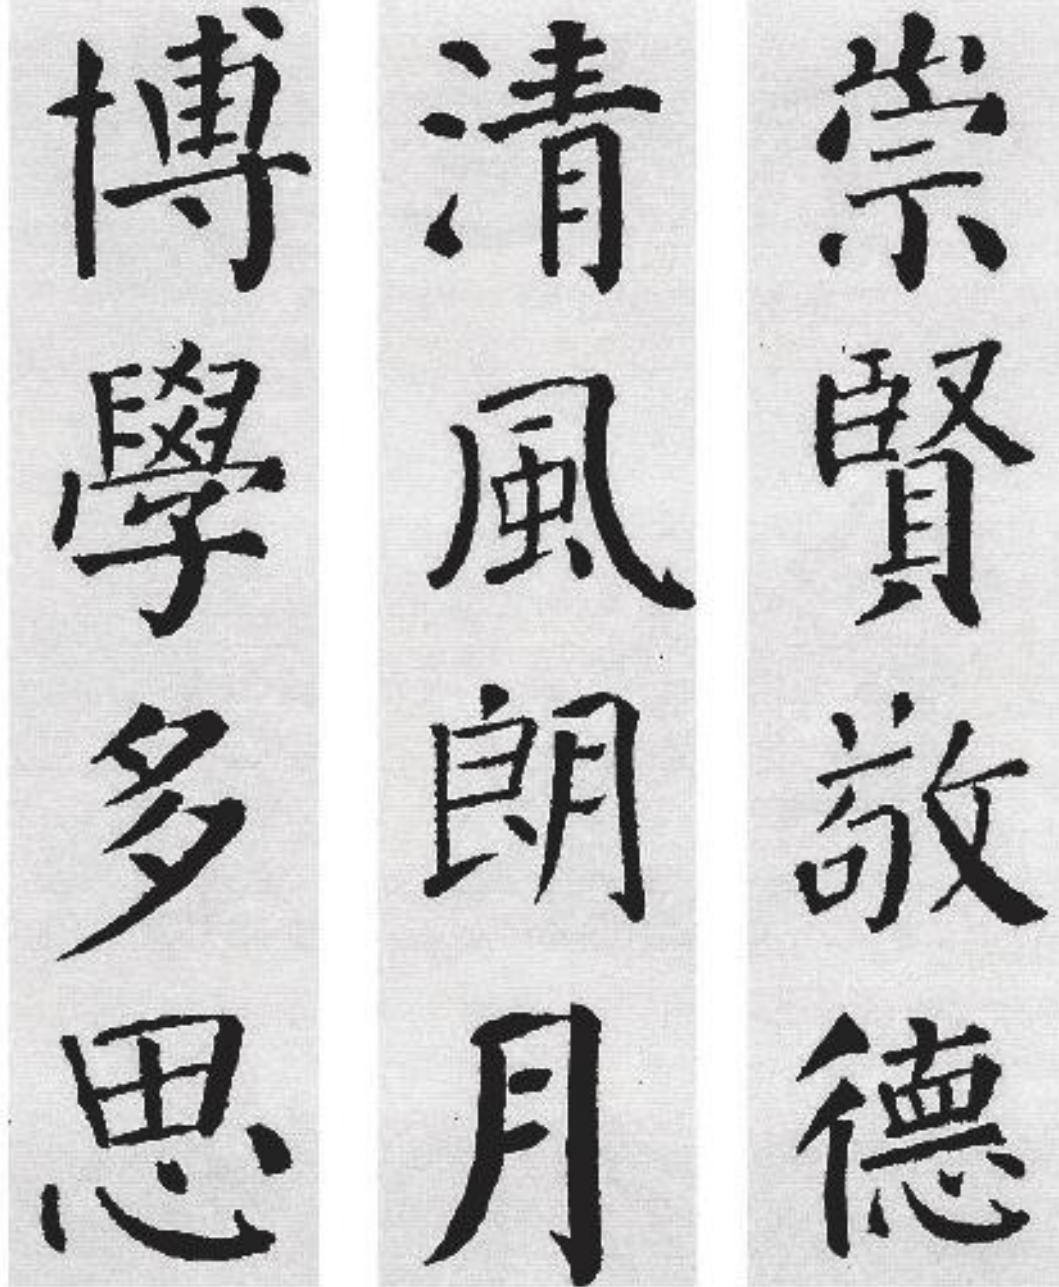 崇賢敬德
清風朗月
博學多思